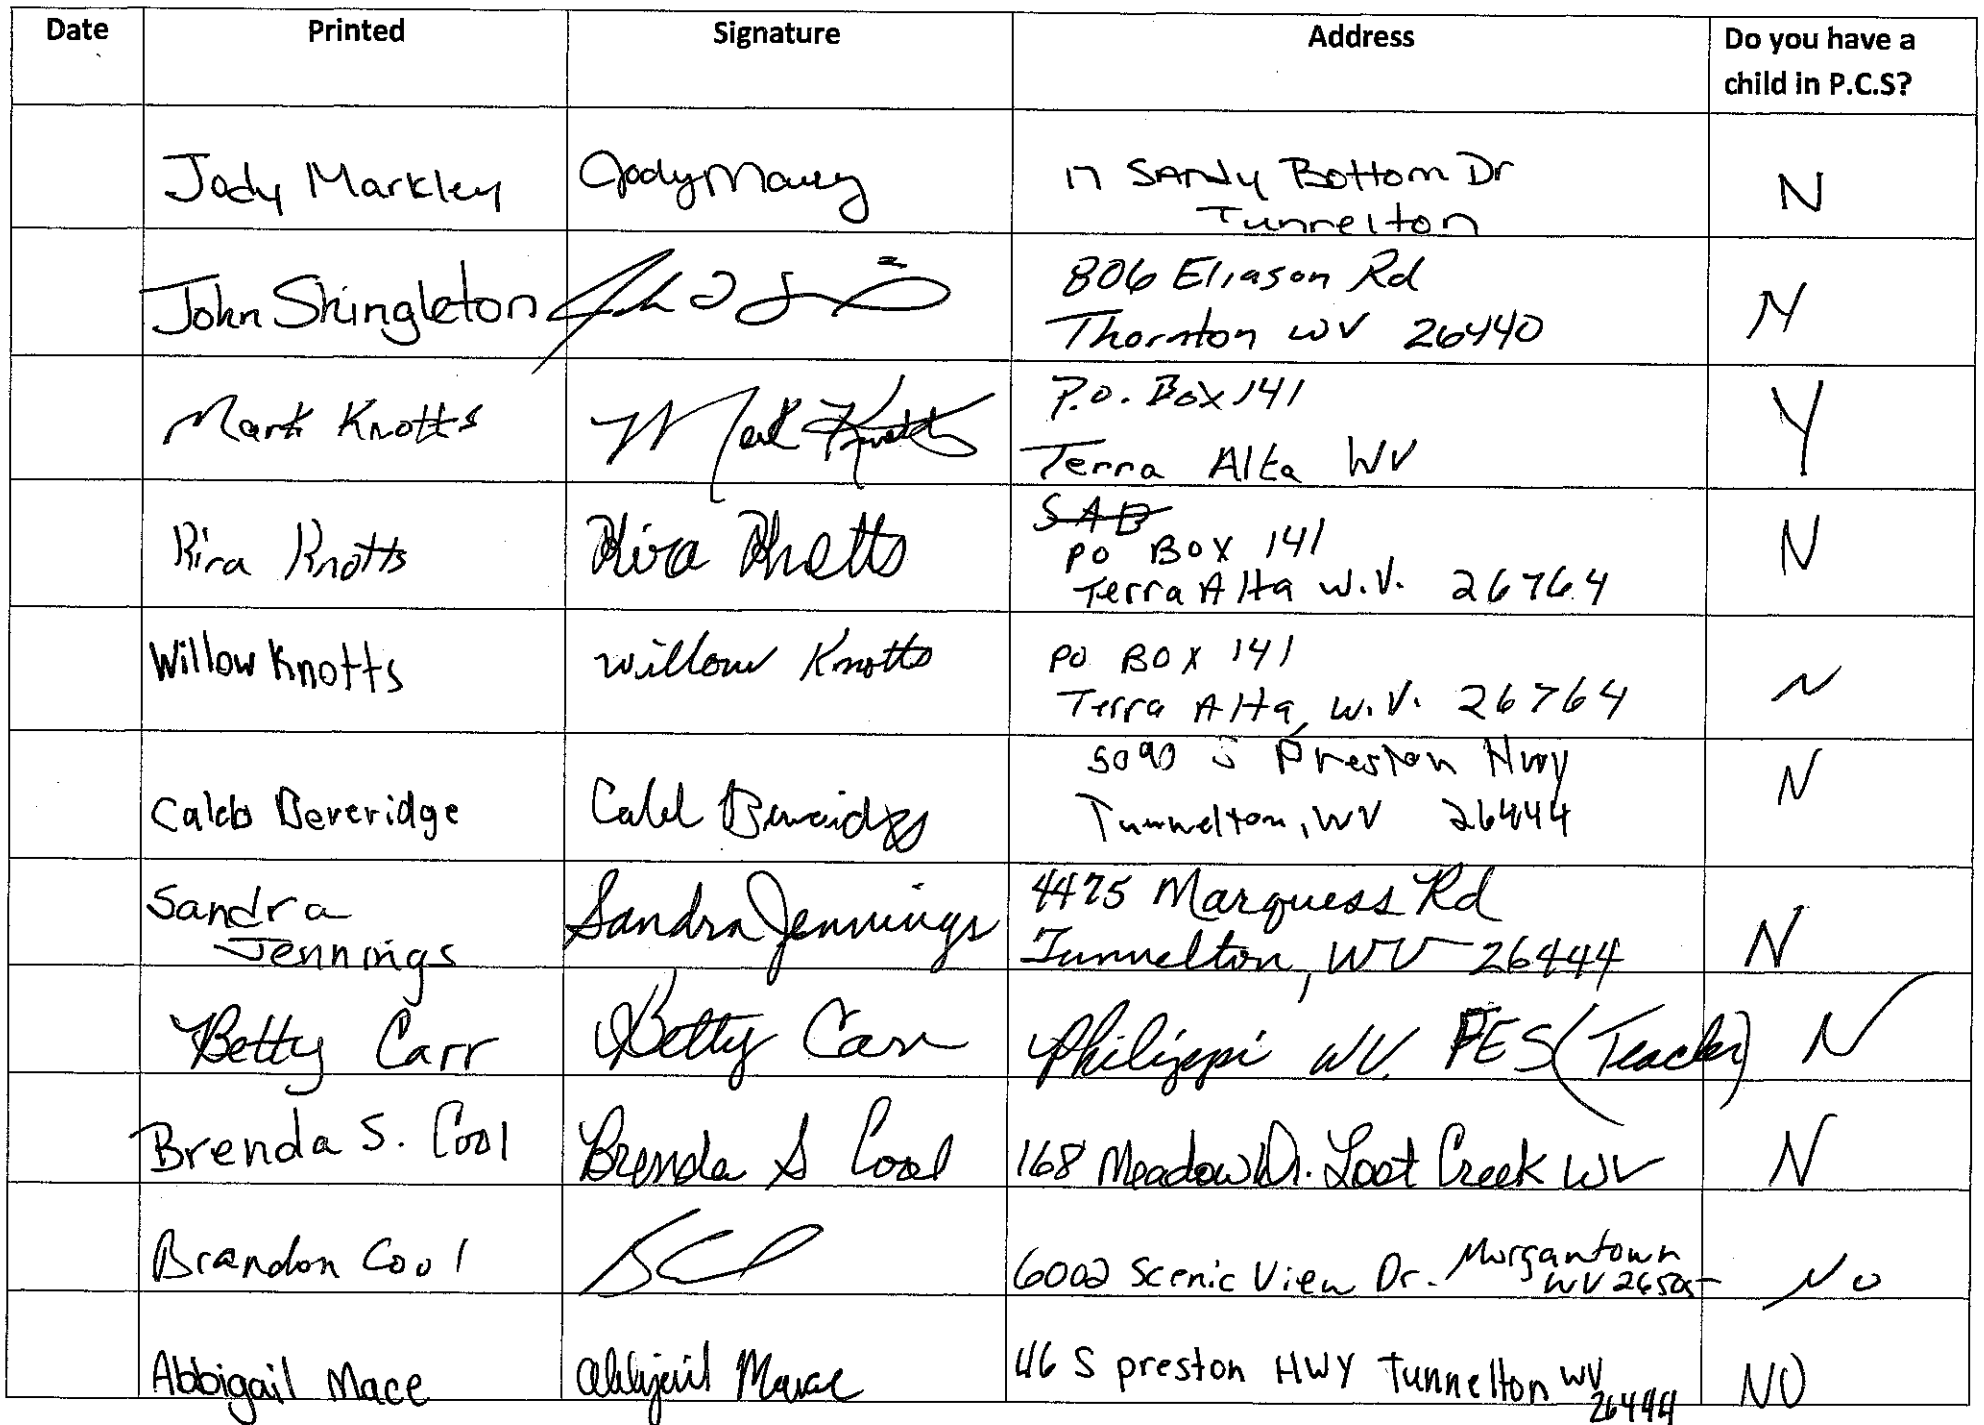 Date Printed Signature Address Do you have a
child in P.C.S?
Jody Markley Jody 17 SANdy Bottom Dr N
Tunnelton
John Shingleton 806 Eliason Rd N
Thornton WV 26440
Mark Knotts Mark Knotts P.O. Box 141 Y
Terra Alta WV
SAB
Kira Knotts Kira Knotts PO BOX 141 N
Terra Alta W.V. 26764
Willow Knotts Willow Knotts PO BOX 141 N
Terra Alta, W.V. 26764
5090 S Preston Hwy N
Caleb Beveridge Caleb Beveridge Tunnelton, WV 26444
Sandra Sandra Jennings 4475 Marquess Rd N
Jennings Tunnelton, WV 26444
Betty Carr Betty Carr Philippi WV. FES (Teacher) N
Brenda S. Cool Brenda S Cool 168 Meadow Dr. Lost Creek WV N
Brandon Cool 6002 Scenic View Dr. Morgantown No
WV 26505
Abbigail Mace Abbigail Mace 46 S preston HWY Tunnelton WV NO
26444